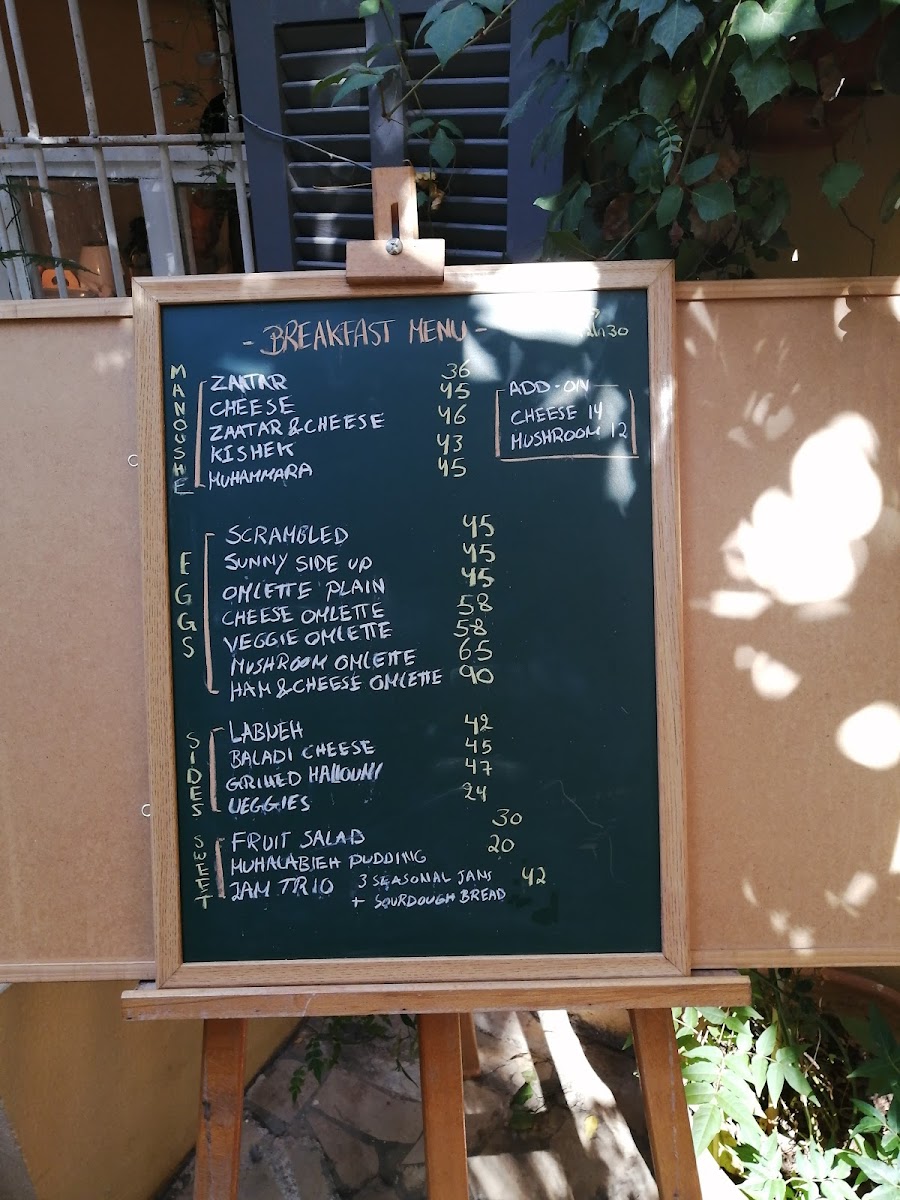 - BREAKFAST MENU -
MANOUSHE
ZAATAR 36
CHEESE 45
ZAATAR & CHEESE 46
KISHEK 43
MUHAMMARA 45
ADD-ON
CHEESE 14
MUSHROOM 12
EGGS
SCRAMBLED 45
SUNNY SIDE UP 45
OMLETTE PLAIN 45
CHEESE OMLETTE 58
VEGGIE OMLETTE 58
MUSHROOM OMLETTE 65
HAM & CHEESE OMLETTE 90
SIDES
LABNEH 42
BALADI CHEESE 45
GRILLED HALLOUMI 47
VEGGIES 24
SWEET
FRUIT SALAD 30
MUHALABIEH PUDDING 20
JAM TRIO 3 SEASONAL JAMS 42
+ SOURDOUGH BREAD